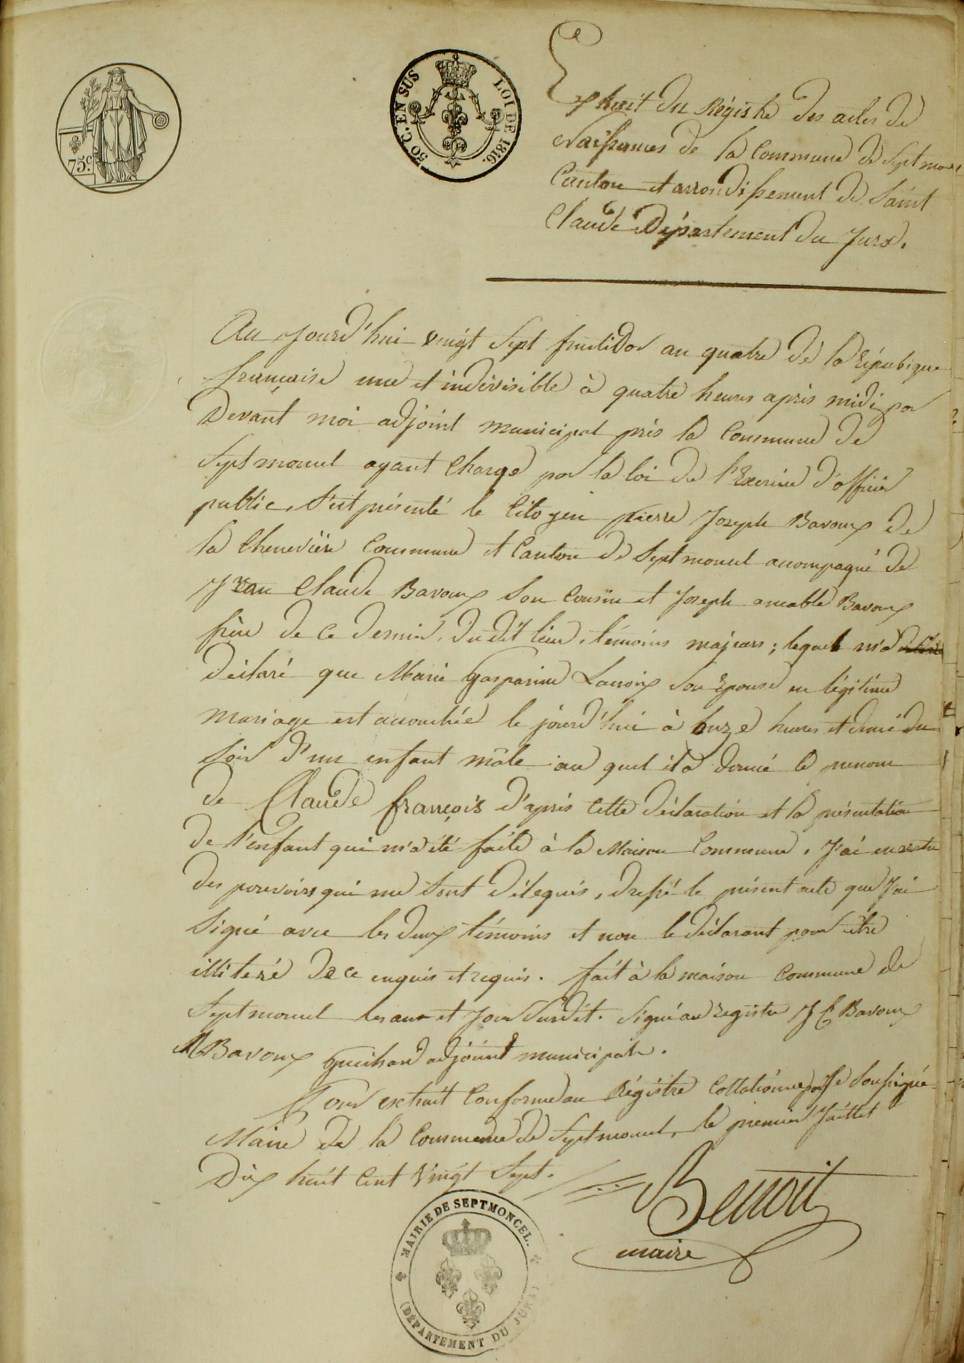 75.c
50 C. EN SUS LOI DE 1816.
Extrait du Régistre des actes de
Naissances de la Commune de Septmoncel
Canton et arrondissement de Saint
Claude Département du Jura.
Au jourd'hui vingt sept fructidor an quatre de la République
française une et indivisible à quatre heures après midi par
Devant moi adjoint municipal près la Commune de
Septmoncel ayant charge par la loi de l'Exercice d'officier
public, s'est présenté le Citoyen pierre Joseph Bavoux de
la Chenevière Commune et Canton de Septmoncel accompagné de
Jean Claude Bavoux son Cousin et Joseph amable Bavoux
frère de ce dernier, dudit lieu, témoins majeurs; lequel m'a
Déclaré que Marie Gasparine Lacroix son Epouse en légitime
mariage est accouchée le jourd'hui à onze heures et demie du
soir d'un enfant mâle au quel il a donné le prenom
de Claude françois d'après cette déclaration et la présentation
de l'enfant qui m'a été faite à la Maison Commune, J'ai en vertu
des pouvoirs qui me sont délegués, dressé le présent acte que J'ai
Signé avec les deux témoins et non le déclarant pour être
illiteré de ce enquis et requis. fait à la maison Commune de
Septmoncel les an et jour Susdit. Signé au registre J C Bavoux
Bavoux Guichard adjoint municipale.
Pour extrait Conforme au Régistre Collationné par Je Soussigné
Maire de la Commune de Septmoncel, le premier Juillet
Dix huit Cent vingt Sept.
Benoit
maire
MAIRIE DE SEPTMONCEL.
(DÉPARTEMENT DU JURA)